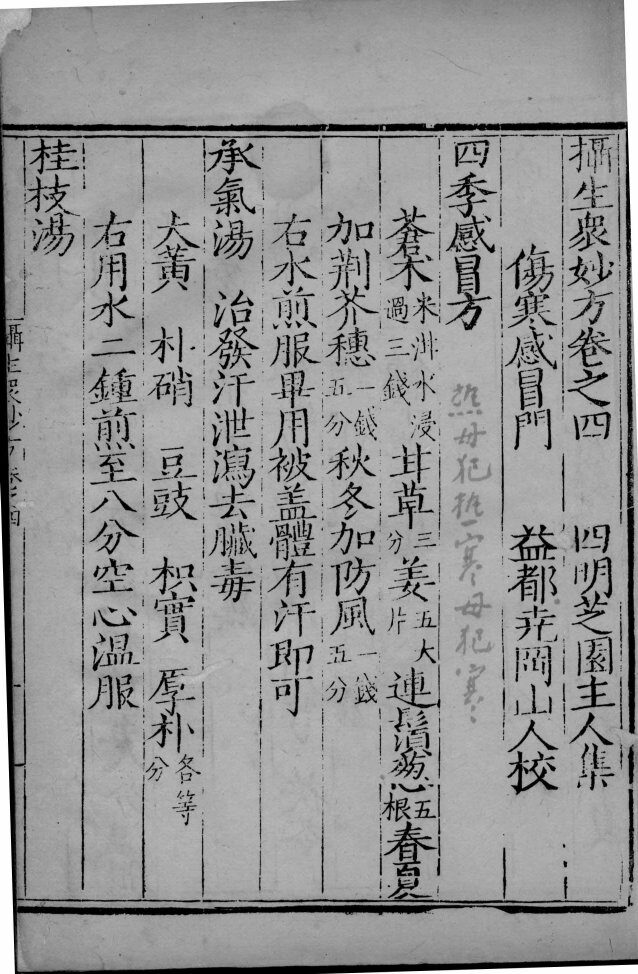 攝生衆妙方卷之四　四明芝園主人集
傷寒感冒門　益都尭岡山人校
四季感冒方
蒼术米泔水浸過三錢　甘草三分　姜五大片　連鬚葱五根　春夏
加荆芥穗一錢五分　秋冬加防風一錢五分
右水煎服畢用被盖體有汗即可
承氣湯　治發汗泄瀉去臟毒
大黃　朴硝　豆豉　枳實　厚朴各等分
右用水二鍾煎至八分空心温服
桂枝湯
攝生衆妙方卷之四
熱毋犯熱寒毋犯寒